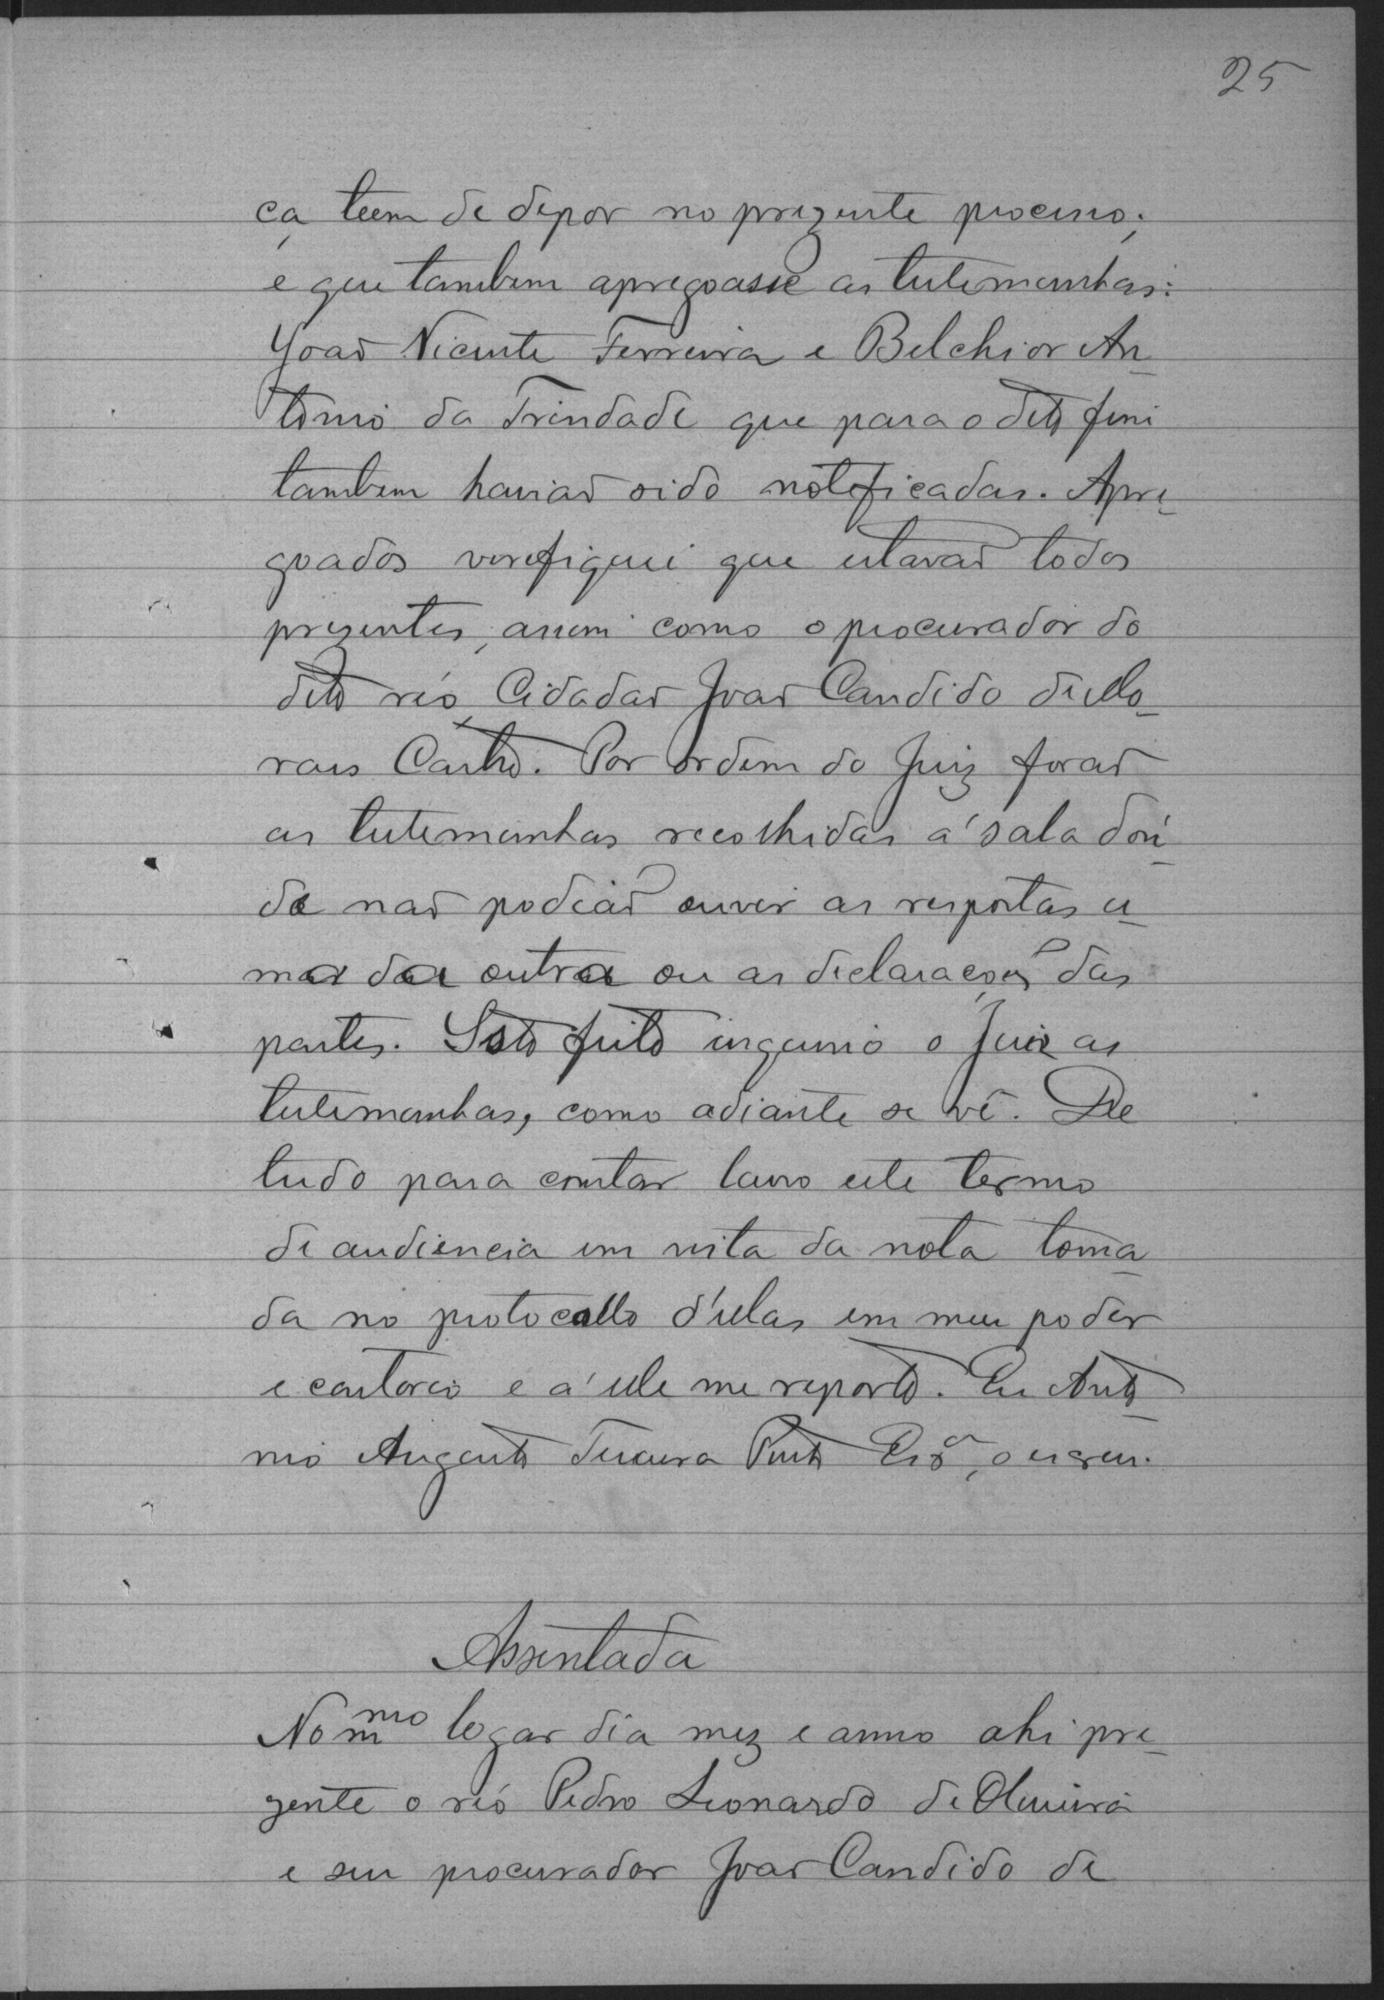 25
ça teem de depor no prezente processo;
e que tambem apregoasse as testemunhas:
João Vicente Ferreira e Belchior An-
tonio da Trindade que para o dito fim
tambem havião sido noteficadas. Apre-
goados verefiquei que estavão todos
prezentes, assim como o procurador do
dito réo, Cidadão João Candido de Mo-
raes Castro. Por ordem do Juiz forão
as testemunhas recolhidas á sala don-
de não podião ouvir as respostas u-
mas das outras ou as declarações das
partes. Isto feito inquerio o Juiz as
testemunhas, como adiante se vê. De
tudo para constar lavro este termo
de audiencia em vista da nota toma-
da no protocollo d'ellas em meu poder
e cartorio e á elle me reporto. Eu Anto-
nio Augusto Teixeira Pinto Esão, o escrevi.
Assentada
No mmo logar dia mez e anno ahi pre-
zente o réo Pedro Leonardo de Oliveira
e seu procurador João Candido de